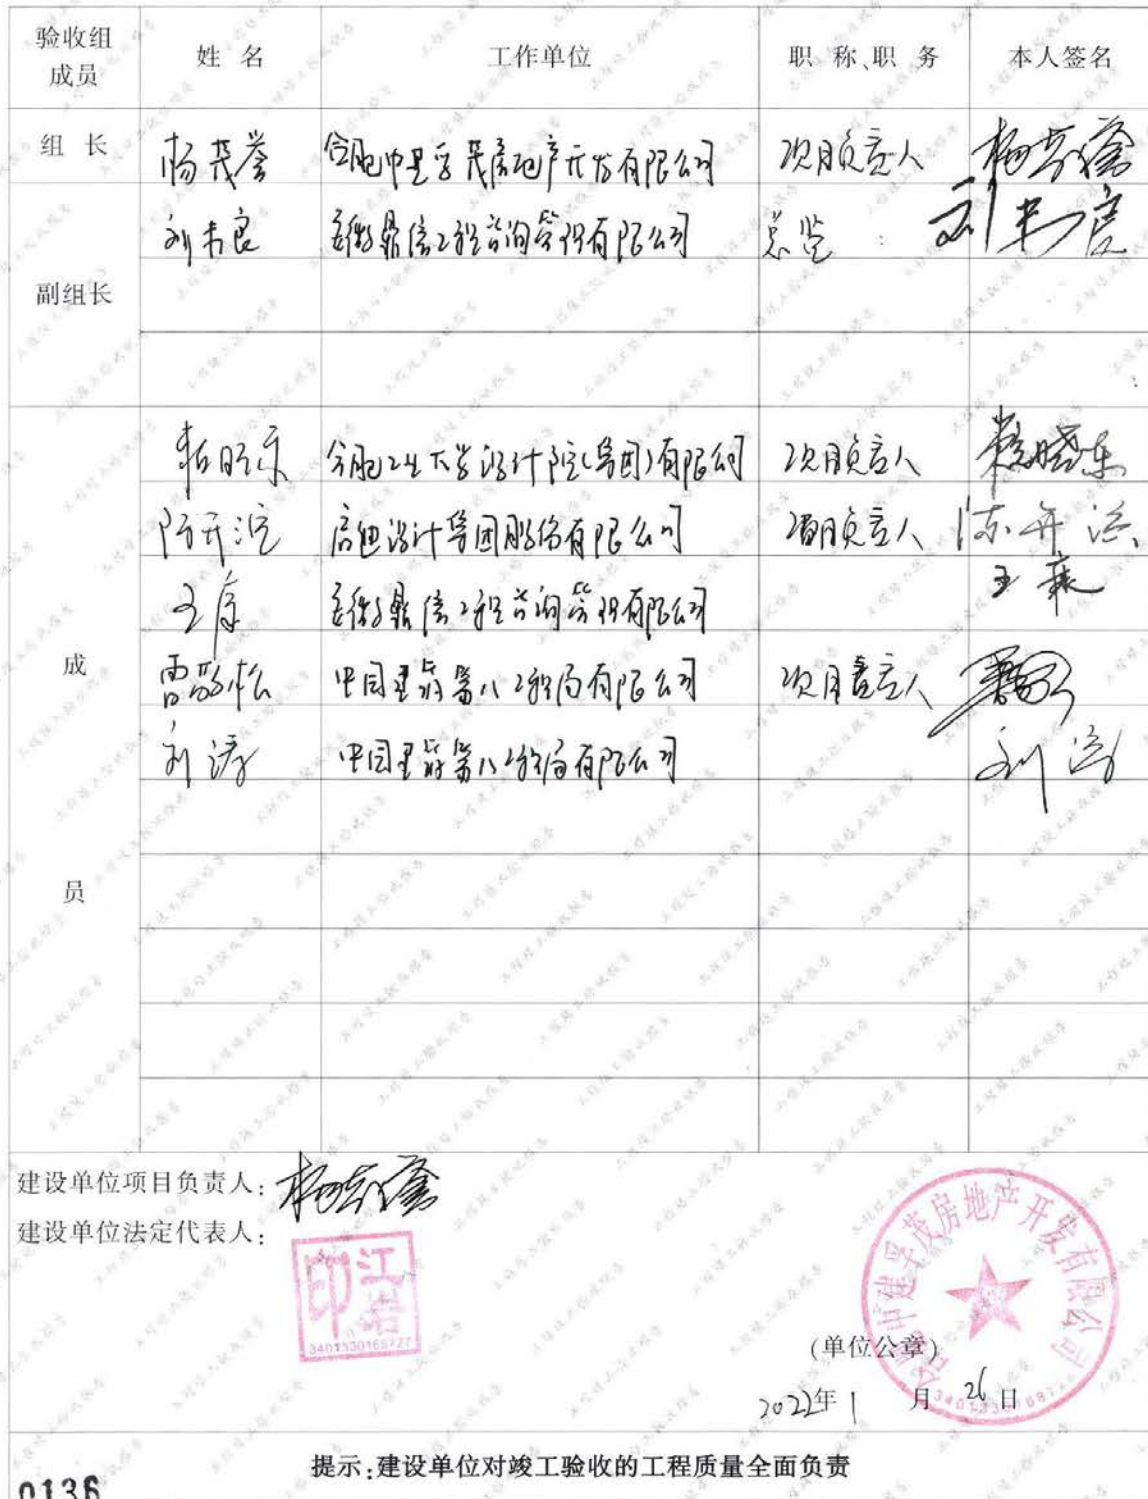 验收组成员 姓 名 工作单位 职 称、职 务 本人签名
组 长 杨茂誉 合肥中建孚茂房地产开发有限公司 项目负责人
副组长 安徽鼎信工程咨询管理有限公司 总监
合肥工业大学设计院(集团)有限公司 项目负责人
启迪设计集团股份有限公司 项目负责人 陈开
王康 安徽鼎信工程咨询管理有限公司 王康
成 雷敬松 中国建筑第八工程局有限公司 项目负责人
刘涛 中国建筑第八工程局有限公司 刘涛
员
建设单位项目负责人:
建设单位法定代表人:
江岩印
合肥中建孚茂房地产开发有限公司
(单位公章)
2022年1月26日
提示:建设单位对竣工验收的工程质量全面负责
0136